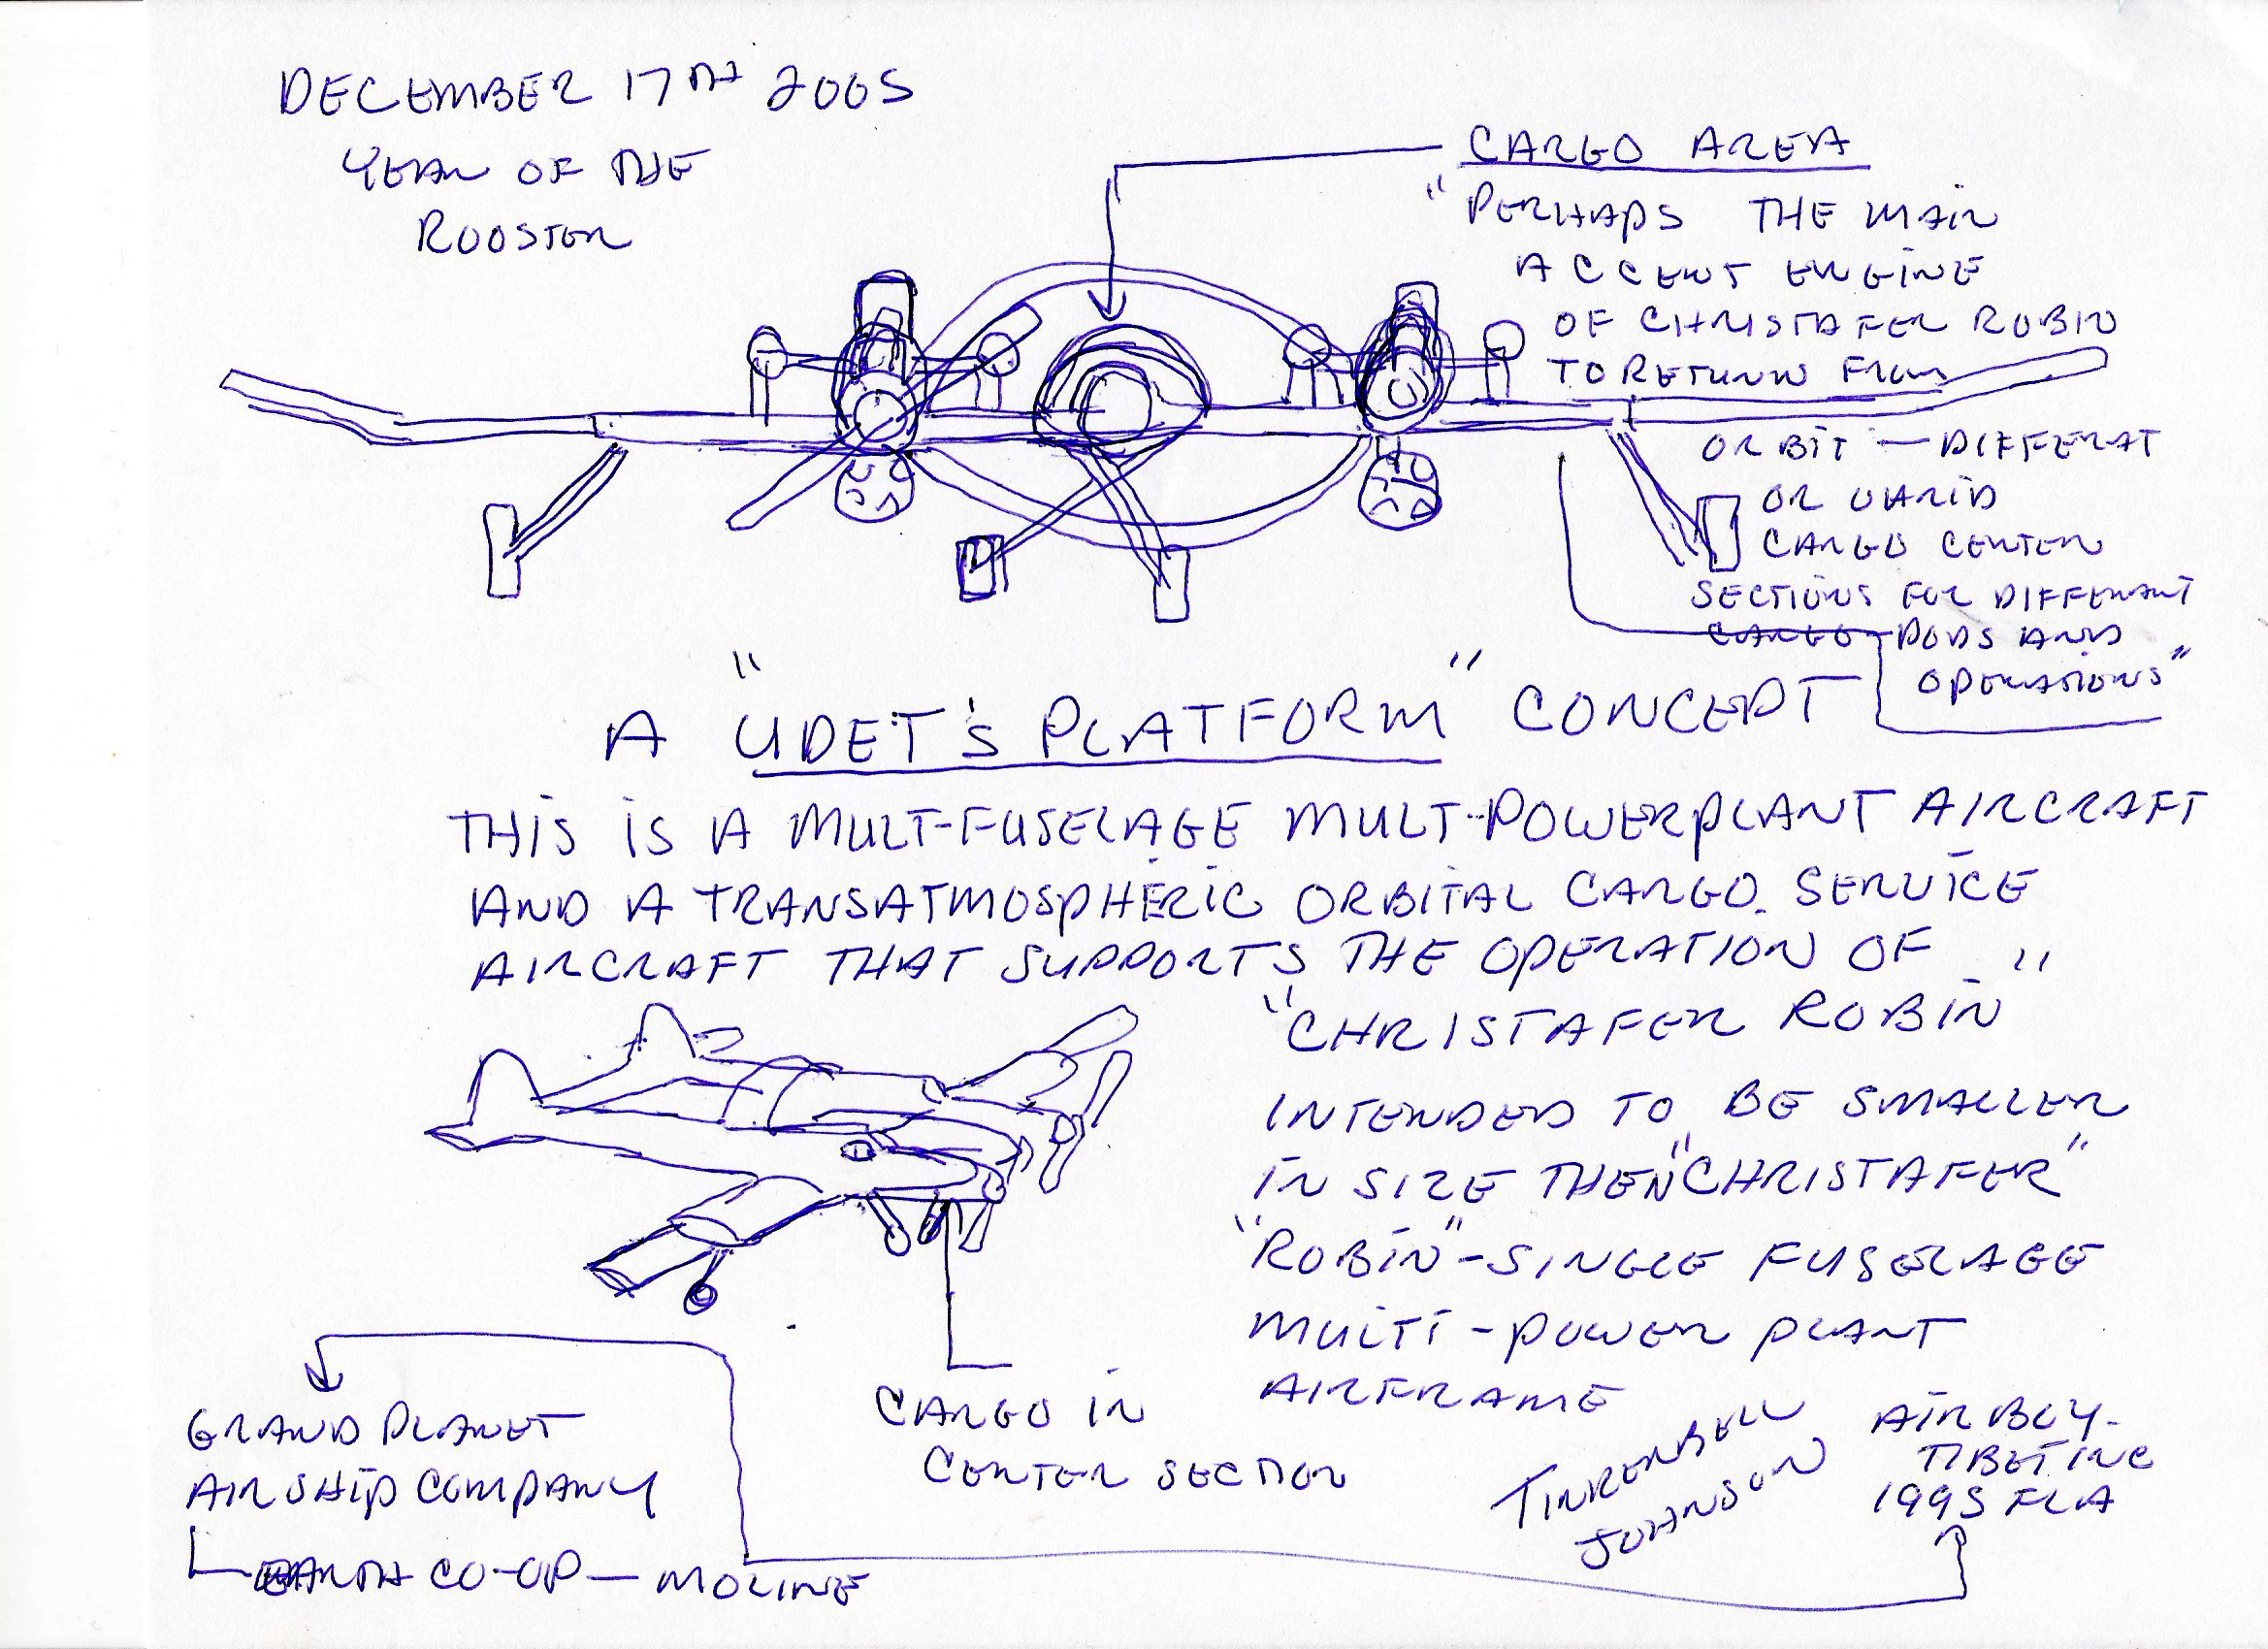 DECEMBER 17TH 2005
YEAR OF THE
ROOSTER
CARGO AREA
"PERHAPS THE MAIN
ACCENT ENGINE
OF CHRISTAFER ROBIN
TO RETURN FROM
ORBIT — DIFFERAT
OR
CARGO CENTER
SECTIONS FOR DIFFERANT
CARGO PODS AND
OPERATIONS"
A "UDET'S PLATFORM" CONCEPT
THIS IS A MULT-FUSELAGE MULT-POWERPLANT AIRCRAFT
AND A TRANSATMOSPHERIC ORBITAL CARGO SERVICE
AIRCRAFT THAT SUPPORTS THE OPERATION OF
"CHRISTAFER ROBIN"
INTENDED TO BE SMALLER
IN SIZE THEN "CHRISTAFER"
"ROBIN"-SINGLE FUSELAGE
MULTI-POWER PLANT
AIRFRAME
CARGO IN
CENTER SECTION
GRAND PLANET
AIRSHIP COMPANY
EARTH CO-OP — MOLINE
TINKERBELL
JOHNSON
AIRBOY-
TIBET INC
1995 FLA